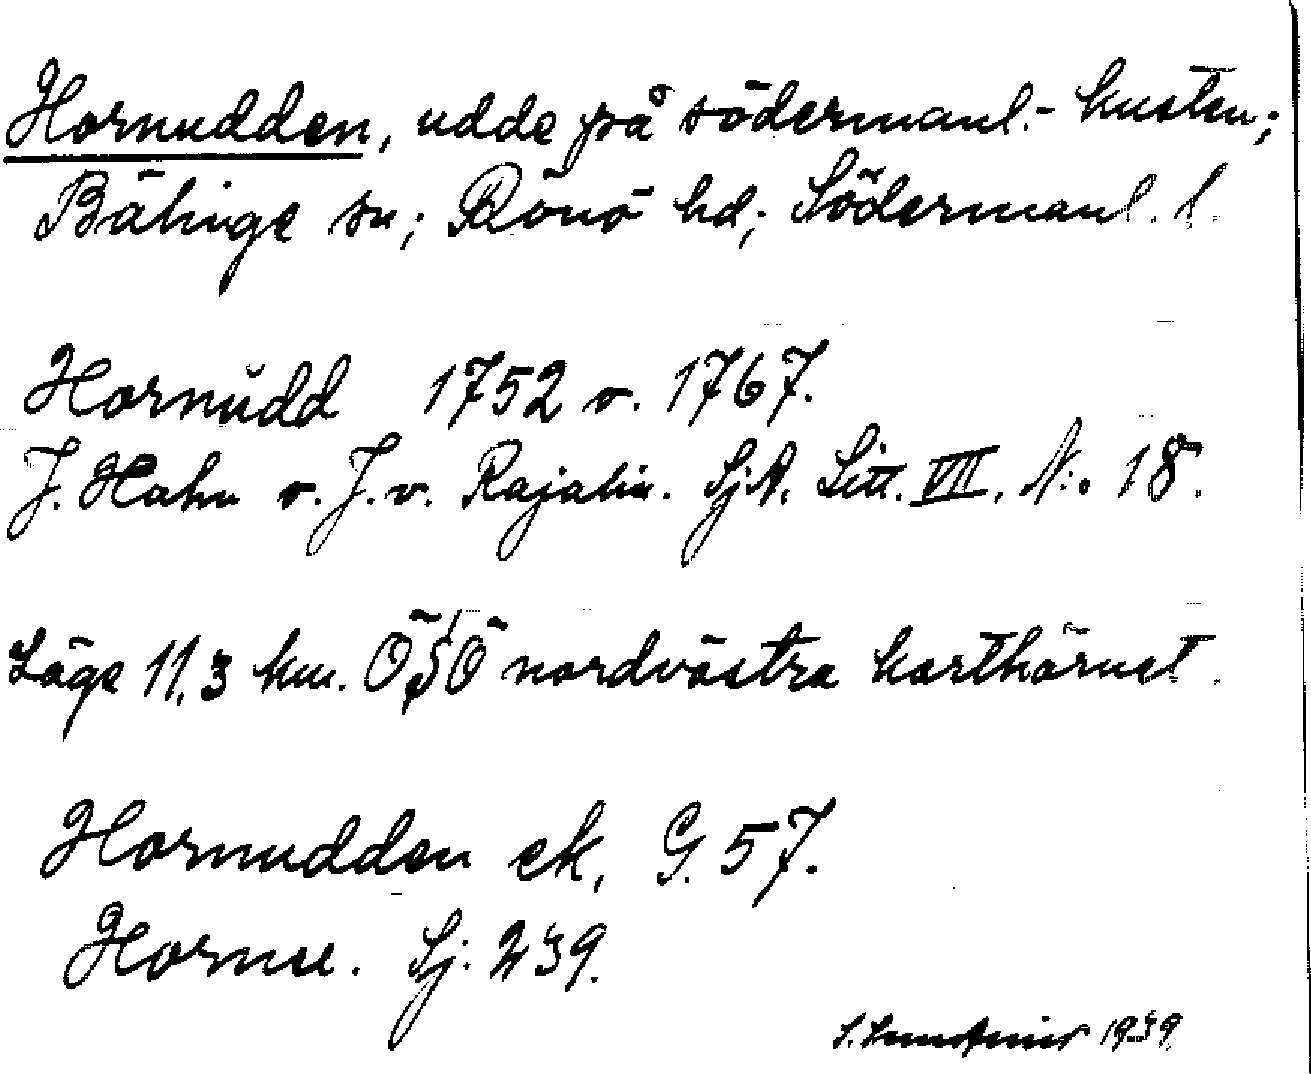 Hornudden, udde på södermanl.- kusten;
Bälinge sn; Rönö hd; Södermanl. l.
Hornudd 1752 o. 1767.
J. Hahn o. J. v. Rajalin. SjA. Litt. VII. N:o 18.
Läge 11,3 km. ÖSÖ nordvästra karthörnet.
Hornudden ek. G. 57.
Hornu. Sj. 239.
1939